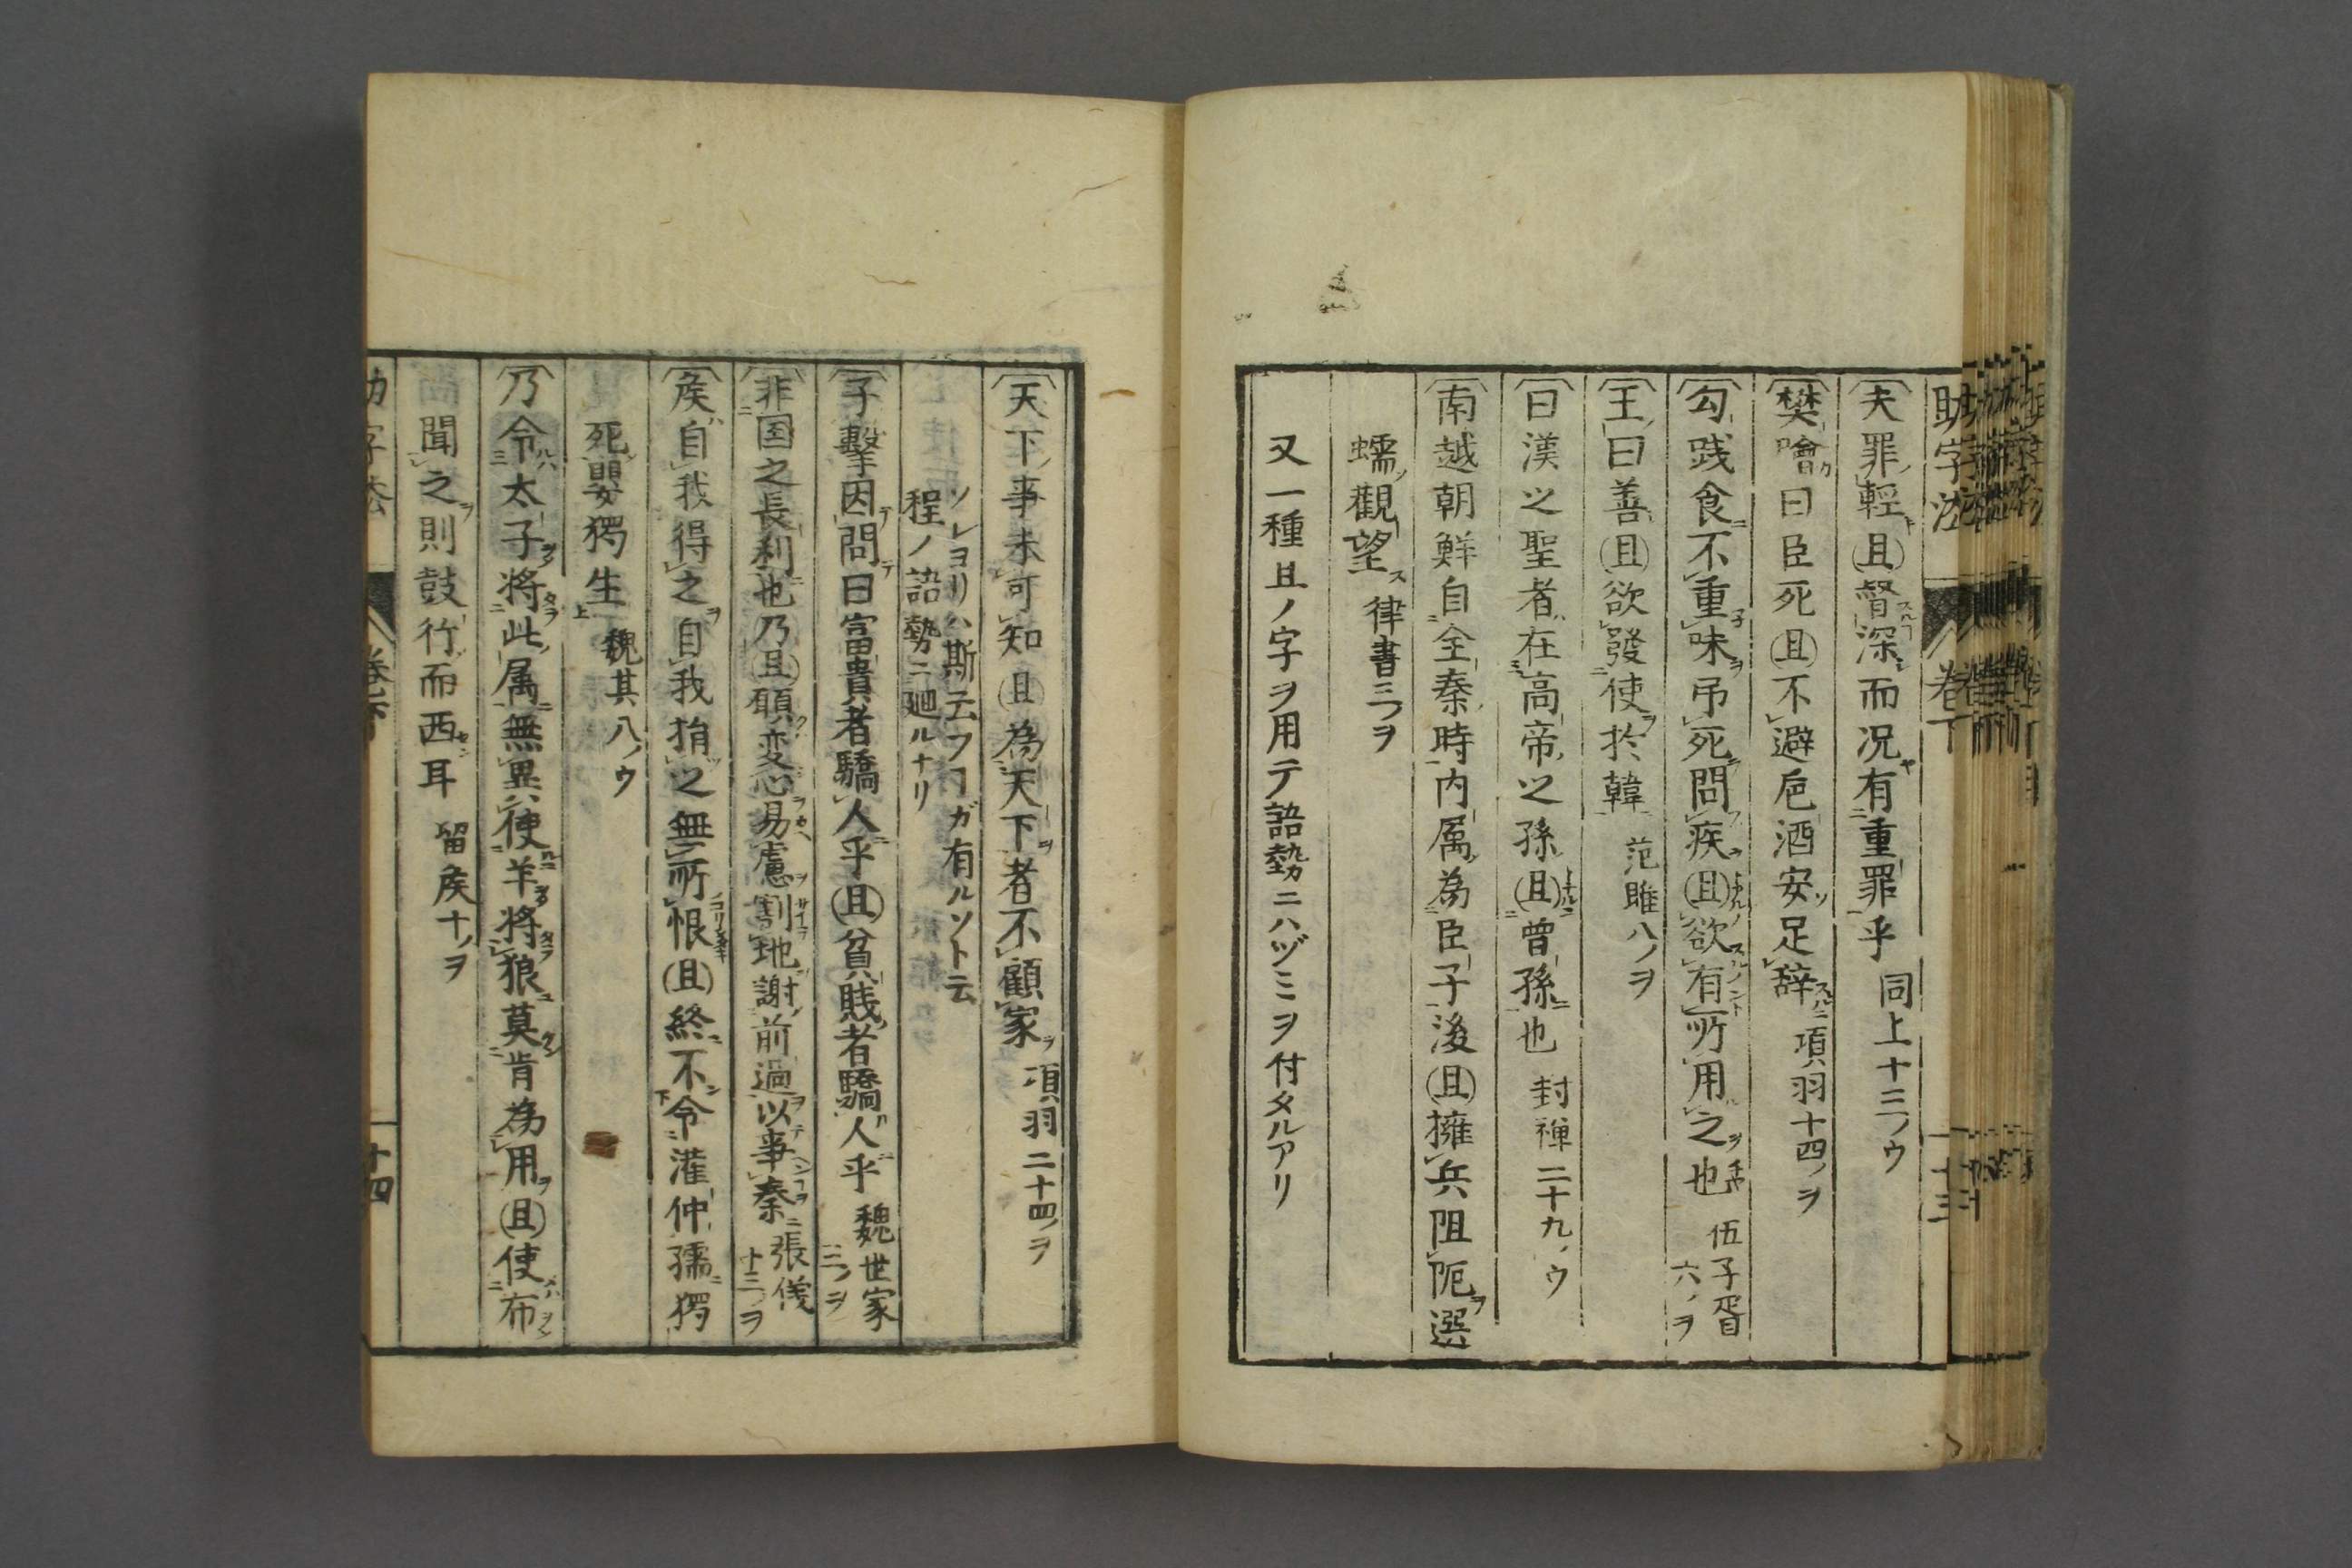 助字法 卷下 十三
夫罪輕且督深而况有重罪乎 同上十三ノウ
樊噲曰臣死且不避巵酒安足辞 項羽十四ノヲ
勾践食不重味吊死問疾且欲有所用之也 伍子胥六ノヲ
王曰善且欲發使於韓 范雎八ノヲ
曰漢之聖者在高帝之孫且曾孫也 封禅二十九ノウ
南越朝鮮自全秦時内属為臣子後且擁兵阻阨選
蠕觀望 律書三ノヲ
又一種且ノ字ヲ用テ語勢ニハヅミヲ付タルアリ
天下事未可知且為天下者不顧家 項羽二十四ノヲ
ソレヨリハ斯云フヿガ有ルソト云
程ノ語勢ニ廻ルナリ
子擊因問曰富貴者驕人乎且貧賎者驕人乎 魏世家二ノヲ
非国之長利也乃且願変心易慮割地謝前過以事秦 張儀十三ノヲ
矦自我得之自我捐之無所恨且終不令灌仲孺獨
死嬰獨生 魏其八ノウ
乃令太子将此属無異使羊将狼莫肯為用且使布
聞之則鼓行而西耳 留矦十ノヲ
助字法 卷下 十四